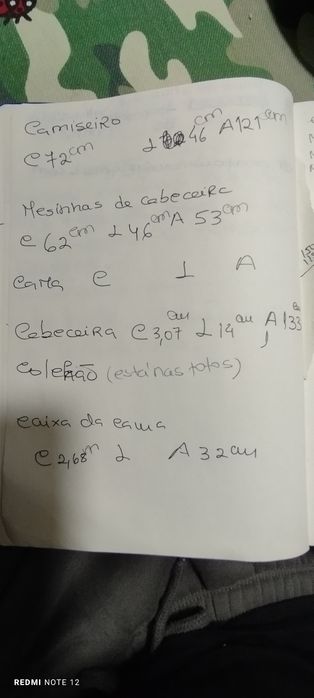 Camiseiro
C 72cm L 46cm A 121cm
Mesinhas de cabeceira
C 62cm L 46cm A 53cm
Cama C L A
Cabeceira C 3,07cm L 14cm A 133
(está nas fotos)
Caixa da cama
C 2,68m L A 32cm
REDMI NOTE 12